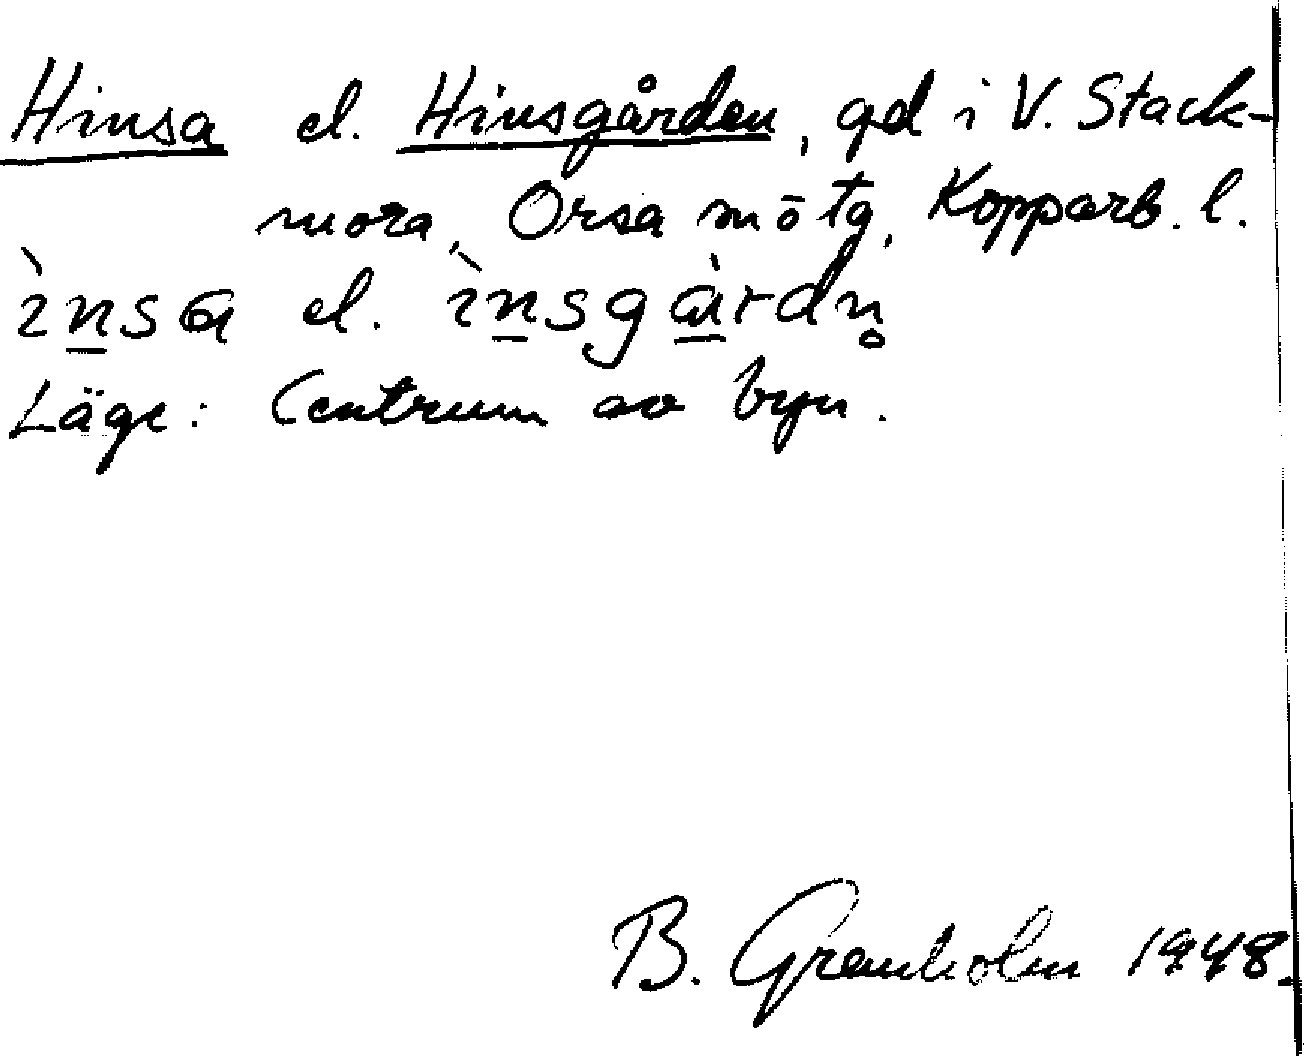 Hinsa el. Hinsgården, gd i V. Stack-
mora, Orsa sn o tg, Kopparb. l.
ìnsa el. ìnsgàrdn̥
Läge: Centrum av byn.
B. Granholm 1948.